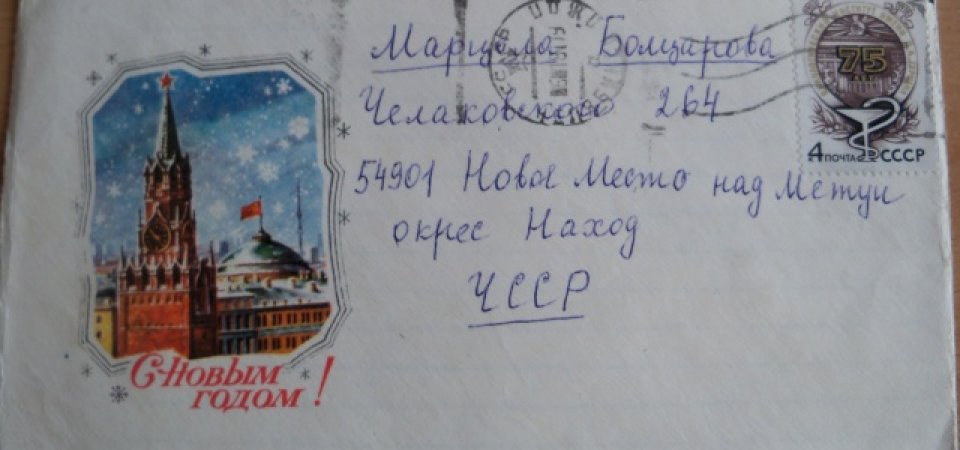 Марцела Бомцарова
Челаковского 264
54901 Новое Место над Метуи
окрес Наход
ЧССР
С Новым
годом!
75
ЛЕТ
4 ПОЧТА СССР